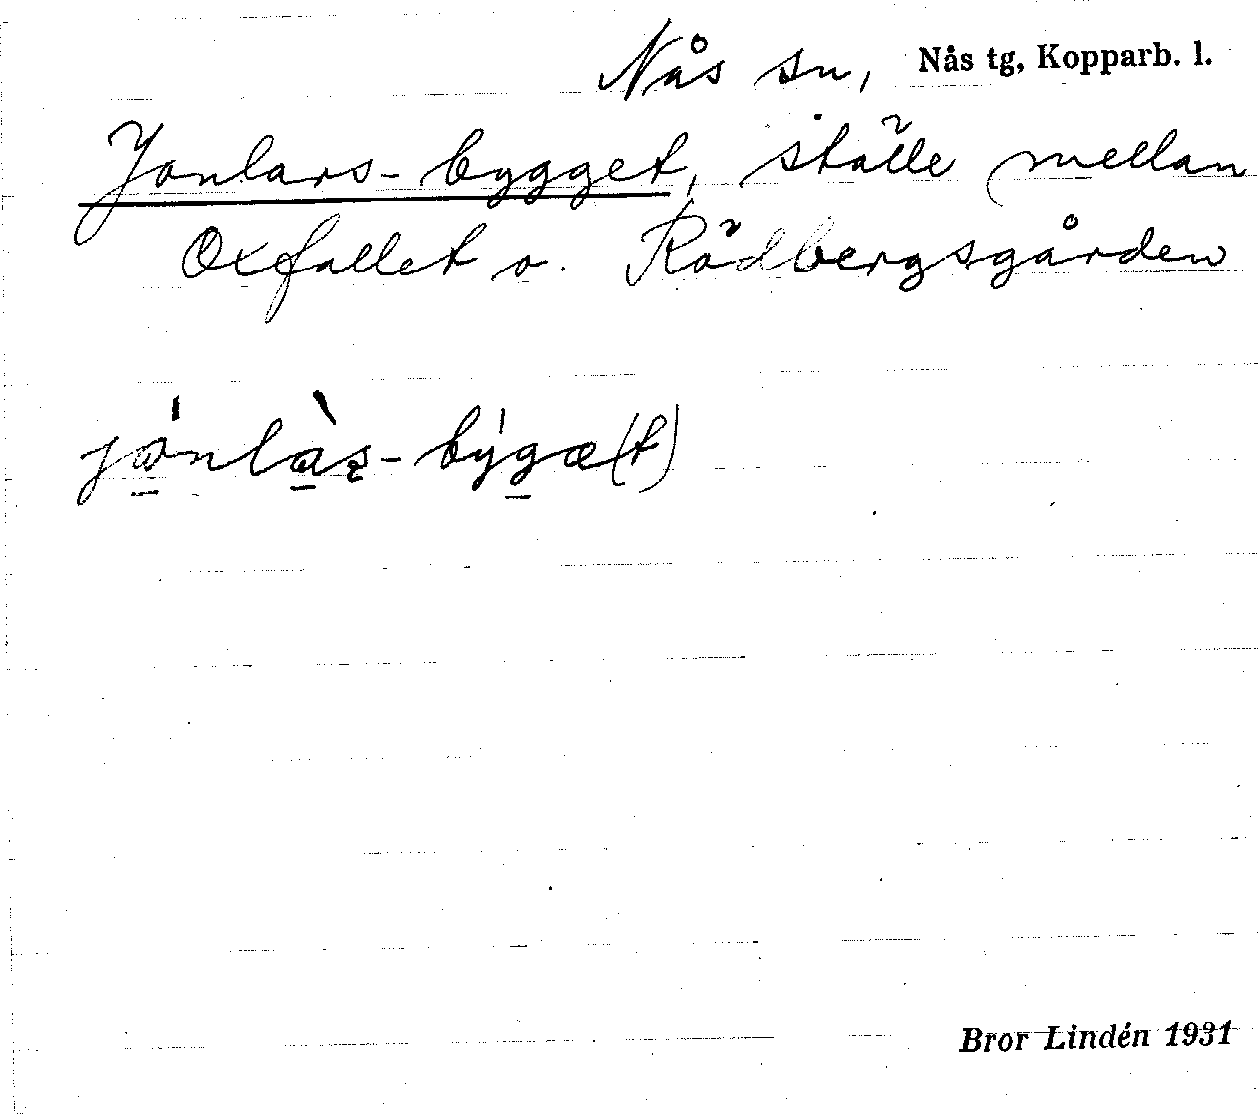 Nås sn, Nås tg, Kopparb. l.
Jonlars-bygget, ställe mellan
Oxfallet o. Rödbergsgården
jo̱nlàş-býgæ(t)
Bror Lindén 1931